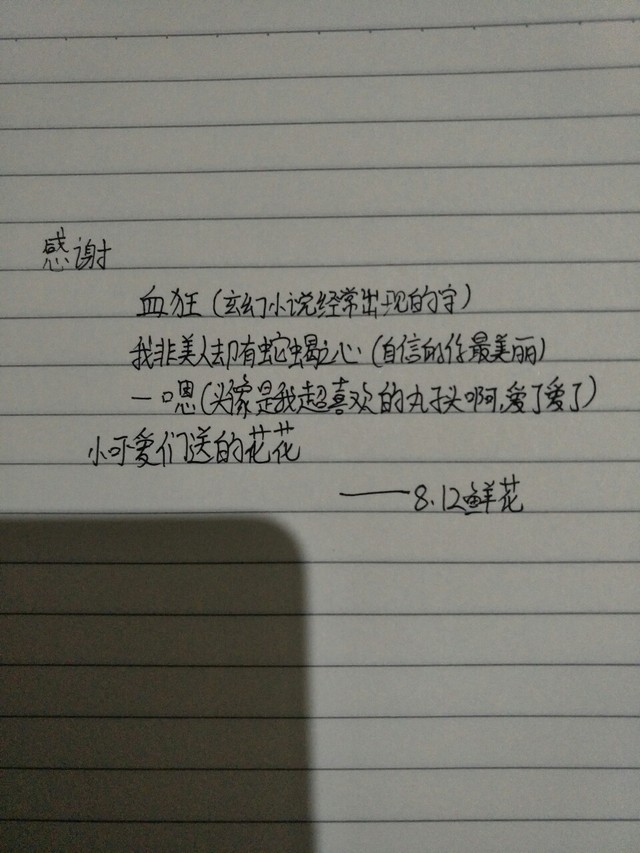 感谢
血狂(玄幻小说经常出现的字)
我非美人却有蛇蝎之心(自信的你最美丽)
一嗯(头像是我超喜欢的丸子头啊,爱了爱了)
小可爱们送的花花
——8.12鲜花